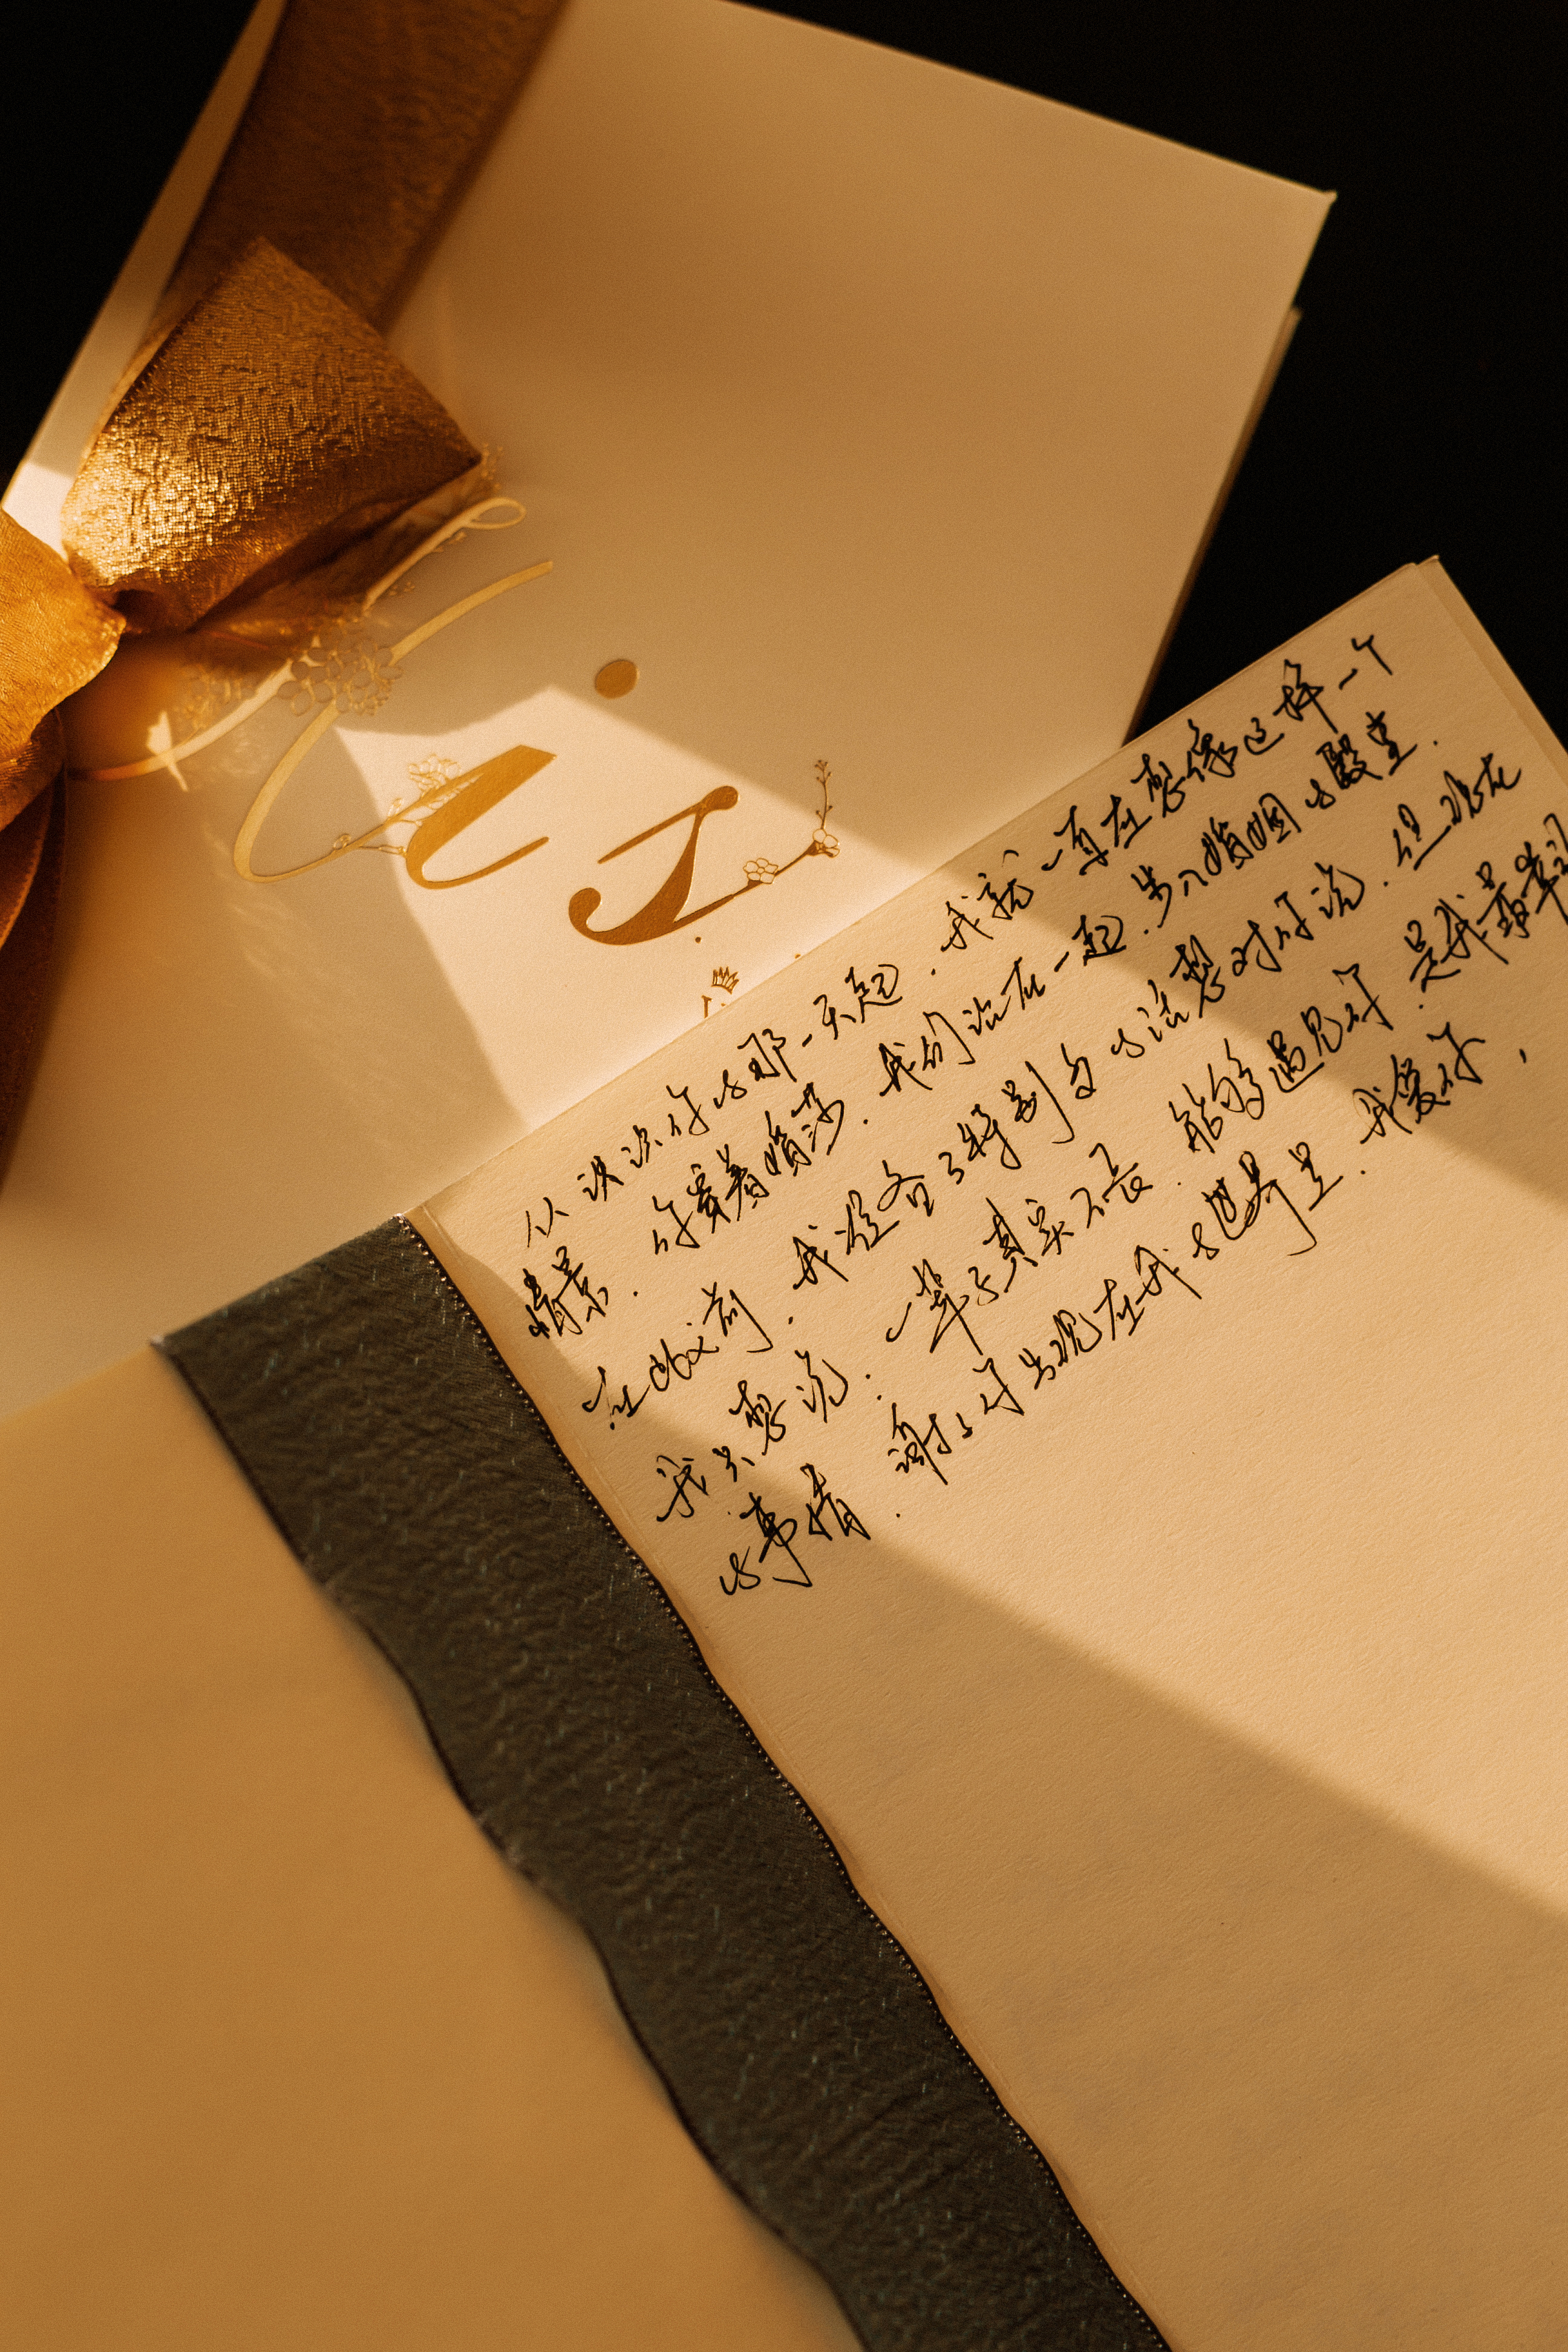 us
从认识你的那一天起.我就一直在想像这样一个
情景.你穿着婚纱.我们站在一起.步入婚姻的殿堂.
在此之前.我准备了特别多的话想对你说.但现在
我只想说:一辈子真实不长.能够遇见你.是我最幸运
的事情.谢谢你出现在我的世界里.我爱你,